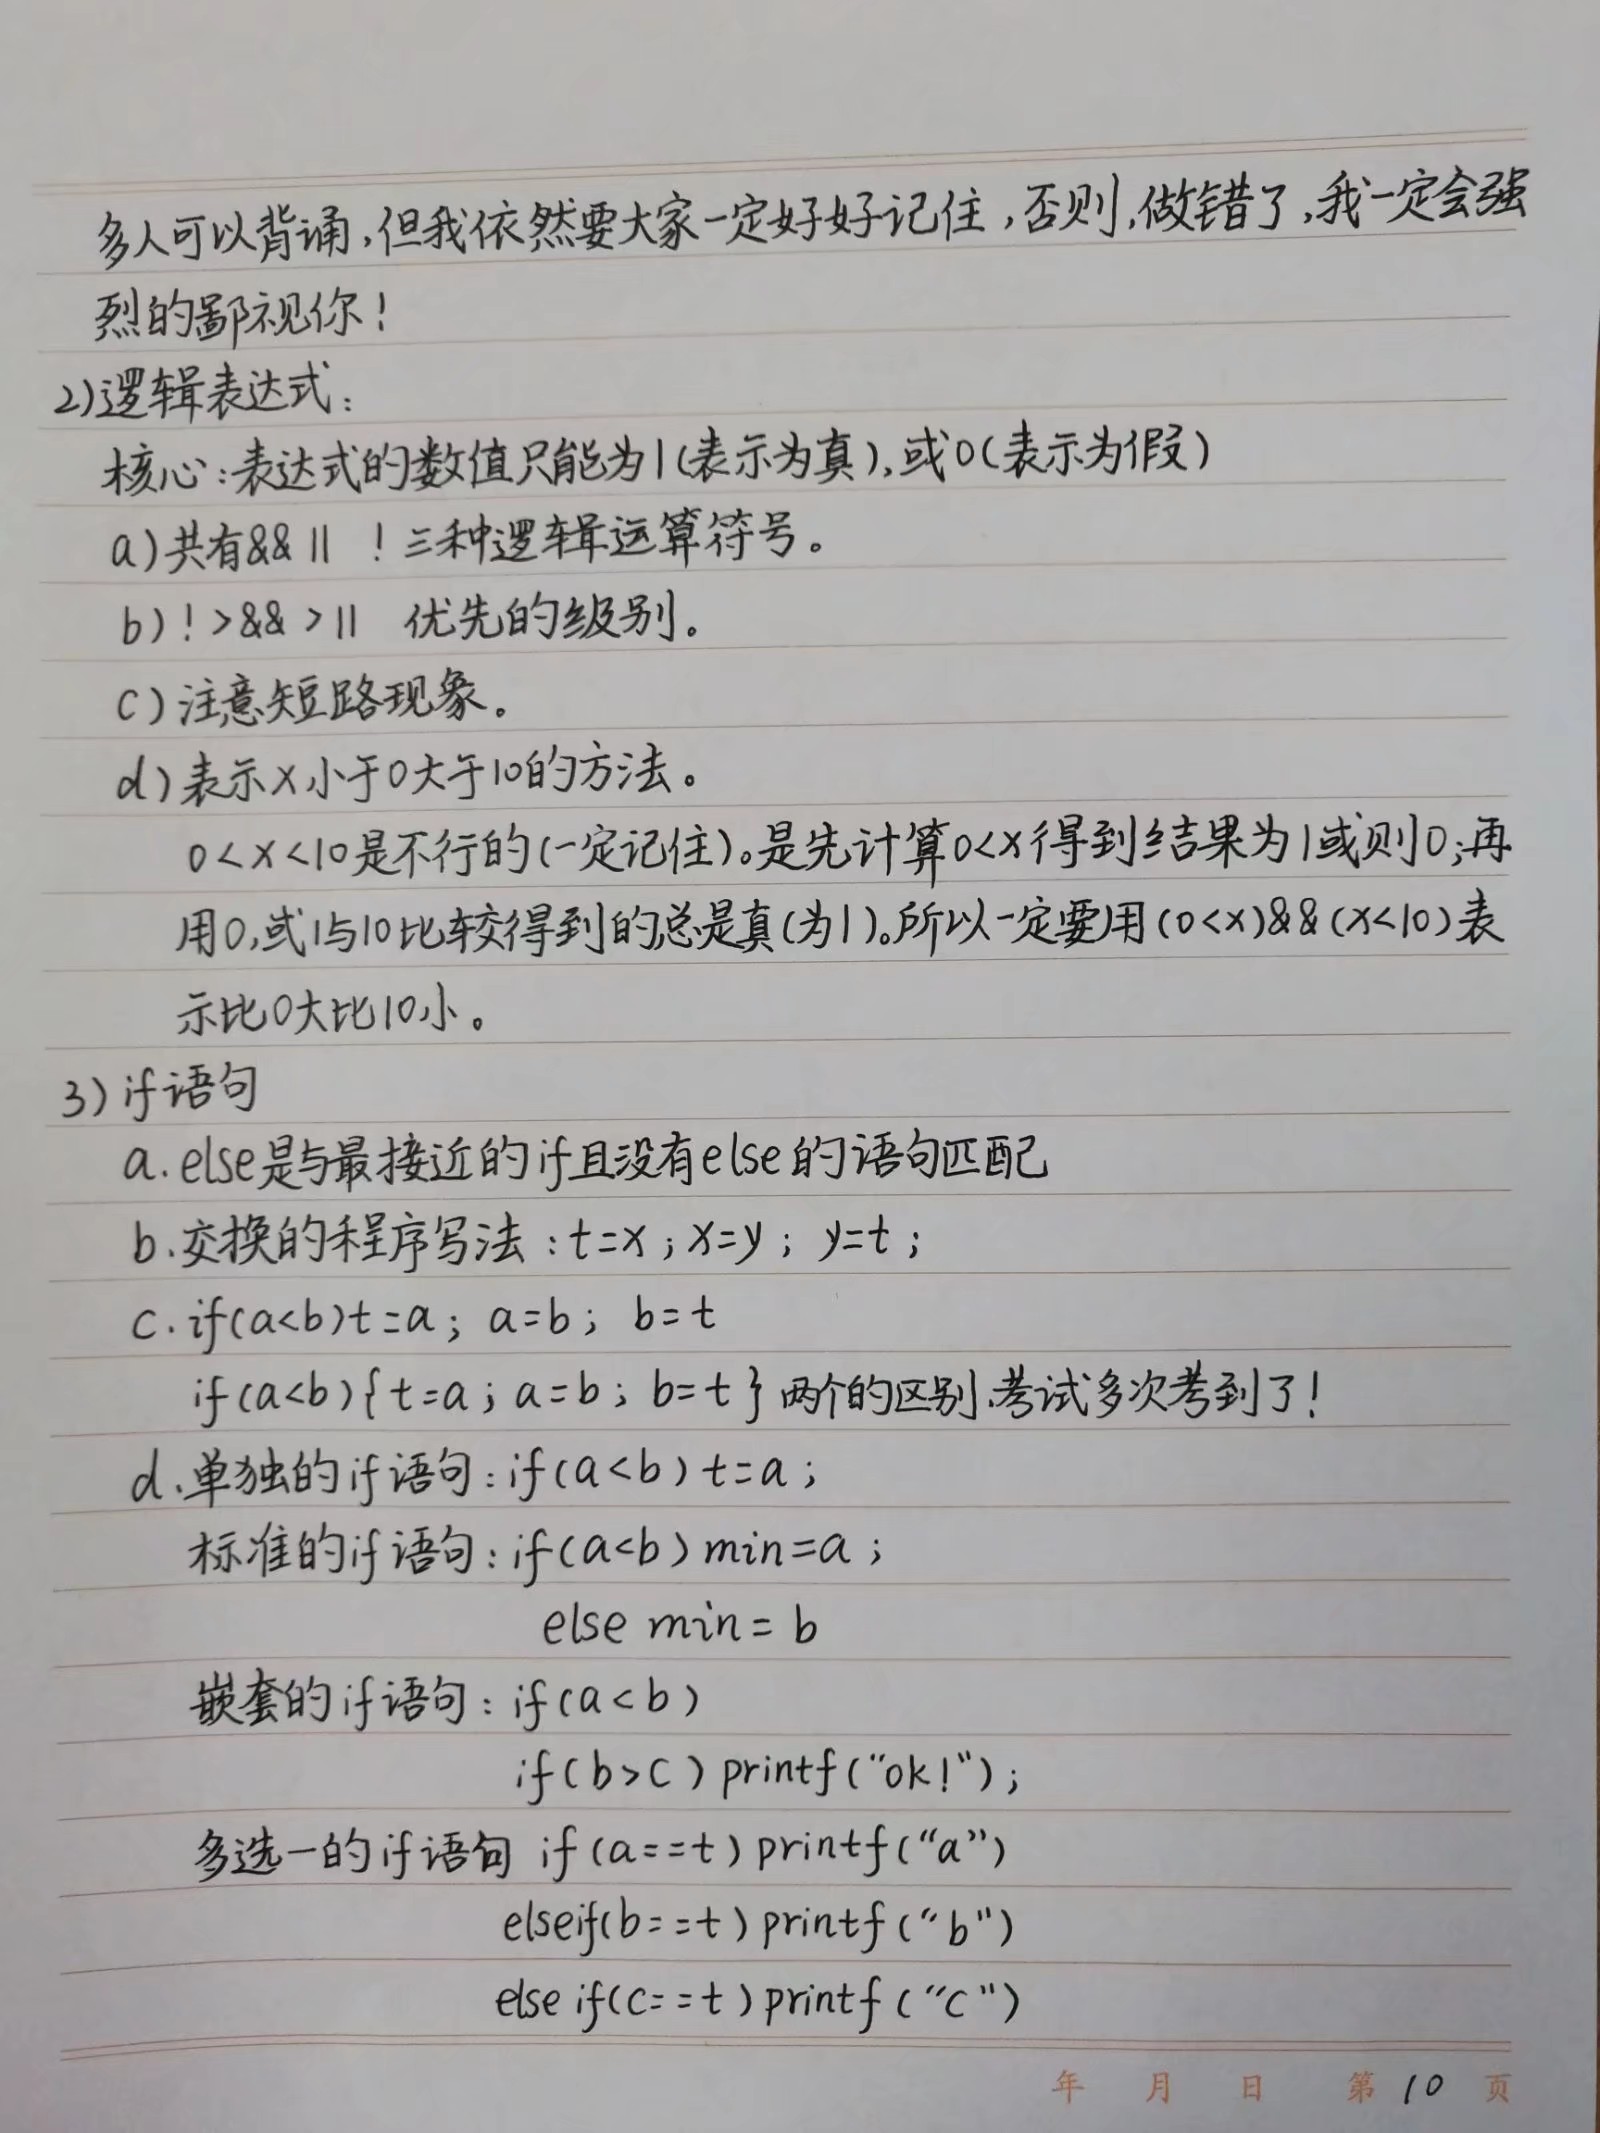 多人可以背诵,但我依然要大家一定好好记住,否则,做错了,我一定会强
烈的鄙视你!
2)逻辑表达式:
核心:表达式的数值只能为1(表示为真),或0(表示为假)
a)共有&&|| !三种逻辑运算符号。
b)!>&&>|| 优先的级别。
c)注意短路现象。
d)表示x小于0大于10的方法。
0<x<10是不行的(一定记住)。是先计算0<x得到结果为1或则0;再
用0,或1与10比较得到的总是真(为1)。所以一定要用(0<x)&&(x<10)表
示比0大比10小。
3)if语句
a.else是与最接近的if且没有else的语句匹配
b.交换的程序写法:t=x;x=y;y=t;
c.if(a<b)t=a;a=b;b=t
if(a<b){t=a;a=b;b=t}两个的区别,考试多次考到了!
d.单独的if语句:if(a<b)t=a;
标准的if语句:if(a<b)min=a;
else min=b
嵌套的if语句:if(a<b)
if(b>c)printf("ok!");
多选一的if语句 if(a==t)printf("a")
elseif(b==t)printf("b")
else if(c==t)printf("c")
年 月 日 第10页